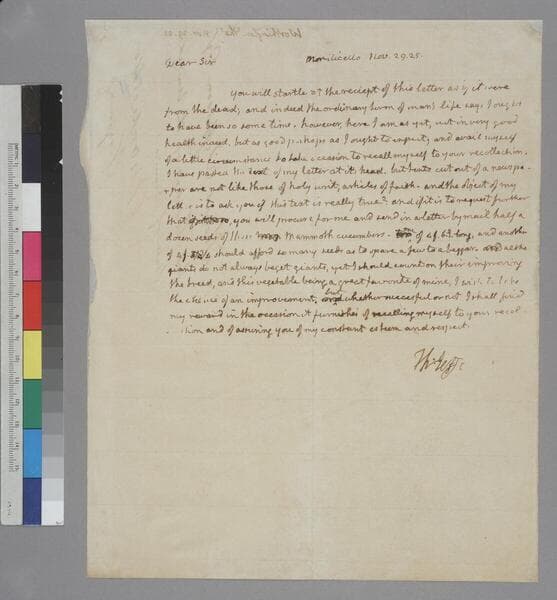 Dear Sir
Monticello Nov. 29. 25.
You will startle at the reciept of this letter as if it were
from the dead; and indeed the ordinary term of man's life says I ought
to have been so some time. however here I am as yet, not in very good
health indeed, but as good perhaps as I ought to expect; and avail myself
of a little circumstance to take occasion to recall myself to your recollection.
I have pasted the text of my letter at it's head. but texts cut out of a newspa-
per are not like those of holy writ, articles of faith. and the object of my
letter is to ask you if this text is really true? and if it is to request further
that you will procure for me and send in a letter by mail half a
dozen seeds of these Mammoth cucumbers. of 4f. 6 I. long, and another
of 4f. should afford so many seeds as to spare a few to a beggar. altho
giants do not always beget giants, yet I should count on their improving
the breed, and this vegetable being a great favorite of mine, I wish to take
the chance of an improvement, but whether successful or not I shall find
my reward in the occasion it furnishes of recalling myself to your recol
tion and of assuring you of my constant esteem and respect.
Th: Jeff